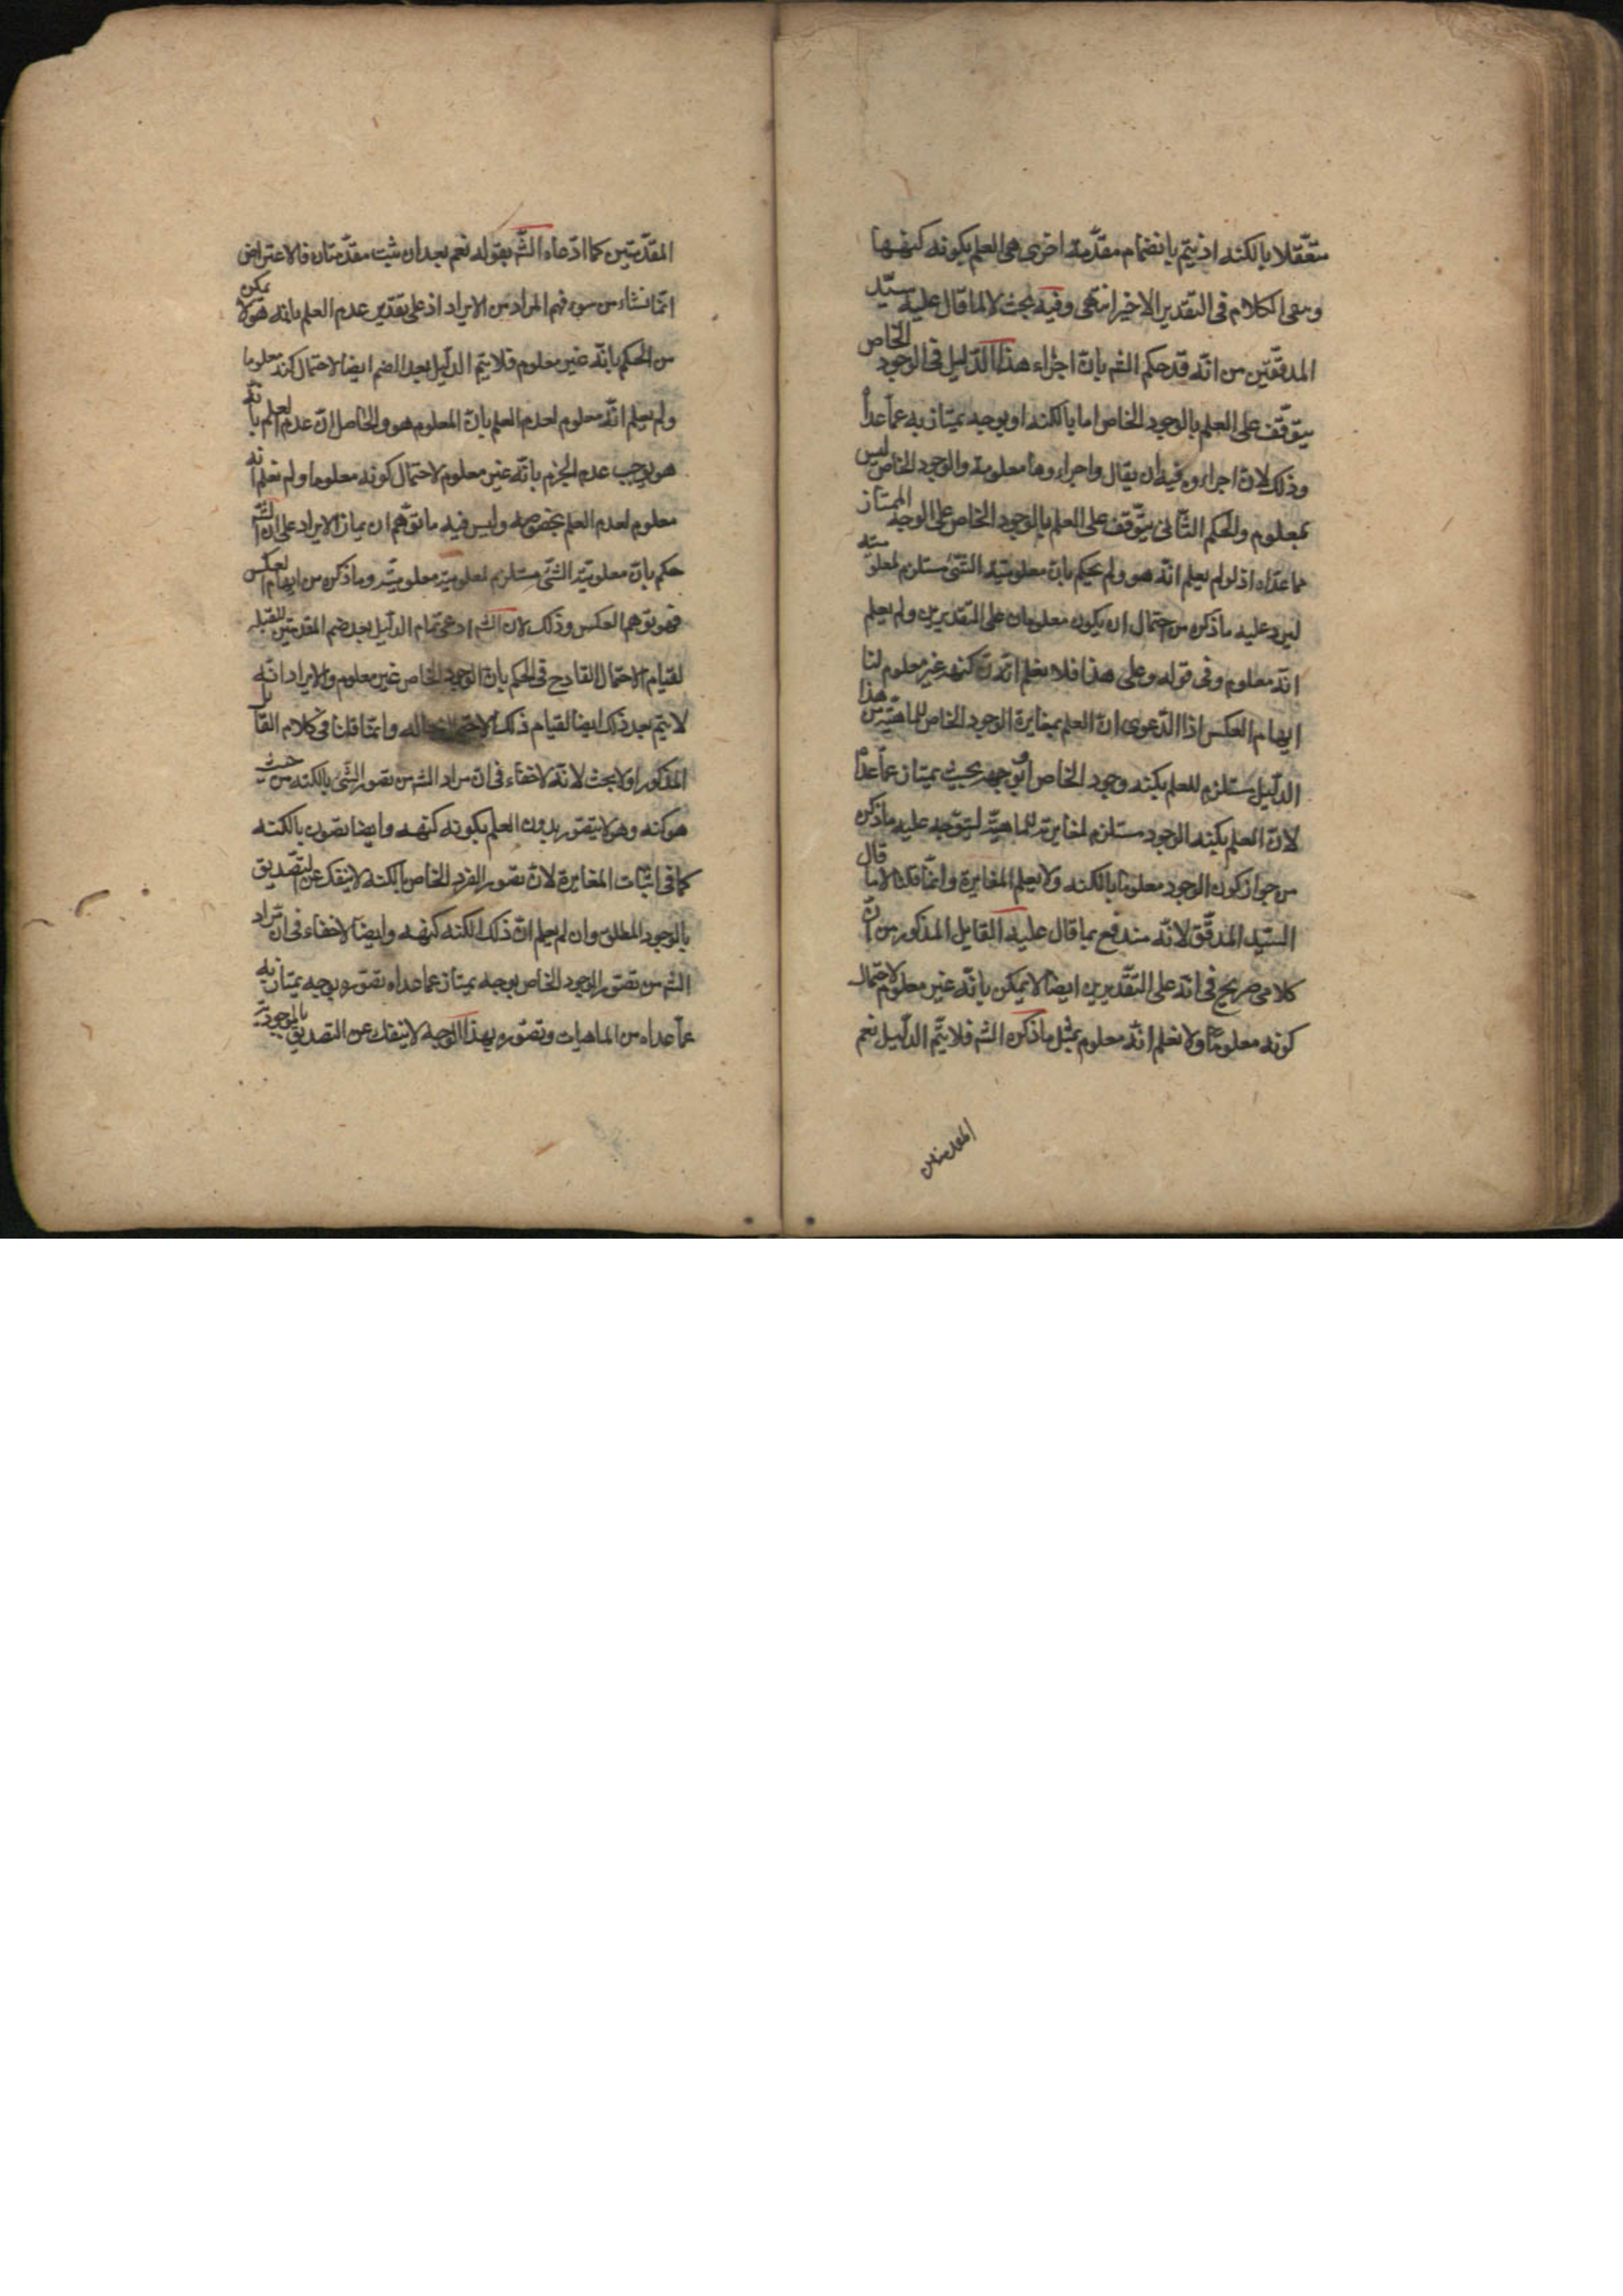 متعقلا بالكنه اذ يتم بانضمام مقدمة اخرى هى العلم بكونه كنهها
وبقى الكلام فى التقدير الاخير انتهى وفيه بحث لا لما قال عليه سيد
المدققين من انه قد حكم الشم بان اجراء هذا الدليل فى الوجود الخاص
يتوقف على العلم بالوجود الخاص اما بالكنه او بوجه يمتاز به عما عداه
وذلك لان اجراءه فيه ان يقال واجزاؤها معلومة والوجود الخاص ليس
بمعلوم والحكم الثانى يتوقف على العلم بالوجود الخاص على الوجه الممتاز
عما عداه اذ لو لم يعلم انه هو ولم يحكم بان معلومية الشئ مستلزم لمعلو ميته
ليرد عليه ما ذكره من احتمال ان يكون معلومان على التقديرين ولم يعلم
انه معلوم وفى قوله وعلى هذا فلا نعلم انه كنهه غير معلوم لنا
ايهام العكس اذا الدعوى ان العلم بمغايرة الوجود الخاص للماهية من هذا
الدليل مستلزم للعلم بكنه وجود الخاص او بوجه بحيث يمتاز عما عداه
لان العلم بكنه الوجود مستلزم لمغايرته للماهية ليتوجه عليه ما ذكره
من جواز كون الوجود معلوما بالكنه ولا يعلم المغايرة وانما قلنا لا ما قال
السيد المدقق لانه مندفع بما قال عليه القايل المذكور من ان
كلامى صريح فى انه على التقديرين ايضا لا يمكن بانه غير معلوم لاحتمال
كونه معلوما ولا نعلم انه معلوم بمثل ما ذكره الشم فلا يتم الدليل نعم
المقدمتين
المقدمتين كما ادعاه الشم بقوله نعم بعد ان يثبت مقدمتان فالاعتراض
انما نشاء من سوء فهم المراد من الايراد اذ على تقدير عدم العلم بانه هو لا يمكن
من الحكم بانه غير معلوم فلا يتم الدليل بعد الضم ايضا لاحتمال كنه معلوما
ولم يعلم انه معلوم لعدم العلم بان المعلوم هو والحاصل ان عدم العلم بانه
هو يوجب عدم الجزم بانه غير معلوم لاحتمال كونه معلوما ولم نعلم انه
معلوم لعدم العلم بخصوصه وليس فيه ما توهم ان بناء الايراد على ان الشم
حكم بان معلومية الشئ مستلزم لمعلومية معلوميته وما ذكره من ايهام العكس
فهو توهم العكس وذلك لان الشم ادعى تمام الدليل بعد ضم المقدمتين
لقيام الاحتمال القادح فى الحكم بان الوجود الخاص غير معلوم والايراد انه
لا يتم بعد ذلك ايضا لقيام ذلك الاحتمال بحاله وانما قلنا فى كلام القايل
المذكور اولا بحث لانه لا خفاء فى ان مراد الشم من تصور الشئ بالكنه من حيث
هو كنه وهو لا يتصور بدون العلم بكونه كنهه وايضا تصوره بالكنه
كما فى اثبات المغايرة لان تصور الفرد الخاص بالكنه لا ينفك عن التصديق
بالوجود المطلق وان لم يعلم ان ذلك الكنه كنهه وايضا لا خفاء فى ان مراد
الشم من تصور الوجود الخاص بوجه يمتاز عما عداه تصوره بوجه يمتاز به
عما عداه من الماهيات وتصوره بهذا الوجه لا ينفك عن التصديق بالموجودية